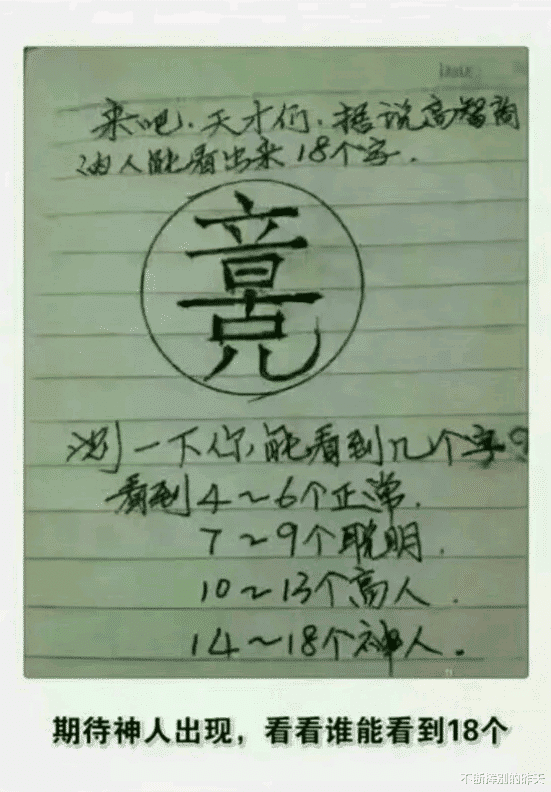 来吧.天才们.据说高智商
的人能看出来18个字.
测一下你能看到几个字?
看到4~6个正常.
7~9个聪明.
10~13个高人.
14~18个神人.
期待神人出现，看看谁能看到18个
不断挥别的昨天